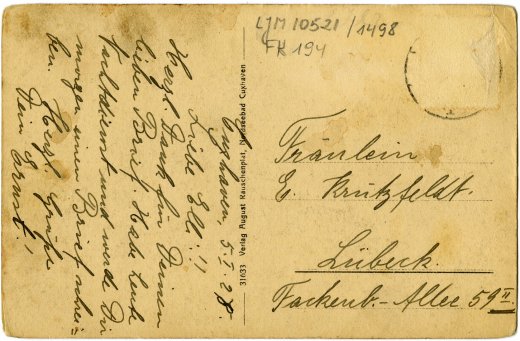 LJM 10521/1498
FK 194
Cuxhaven, 5. I 28.
Liebe Elli!
Herzl. Dank für Deinen
lieben Brief. Habe heute
Nachtdienst und werde Dir
morgen einen Brief schrei=
ben. Herzl. Grüße
Dein Ernst!
31633 Verlag August Rauschenplat, Nordseebad Cuxhaven
Fräulein
E. Krützfeldt.
Lübeck.
Fackenb.-Allee 59 II